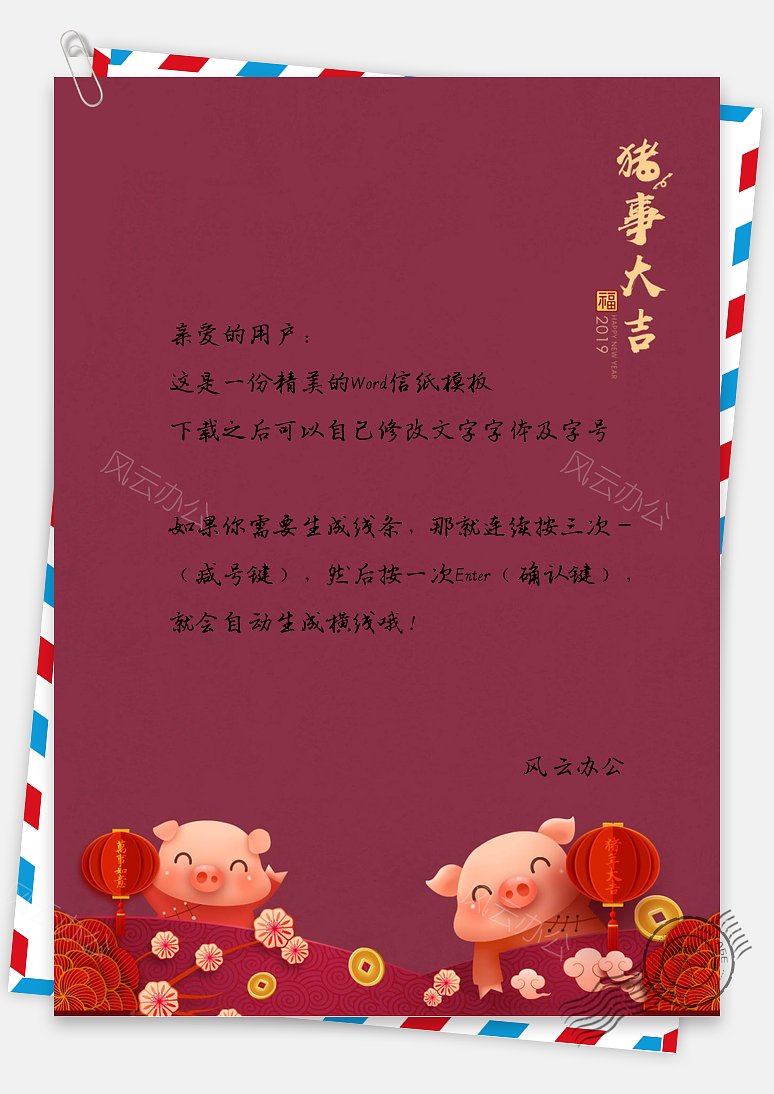 猪事大吉
福
2019
HAPPY NEW YEAR
亲爱的用户：
这是一份精美的Word信纸模板
下载之后可以自己修改文字字体及字号
风云办公
风云办公
如果你需要生成线条，那就连续按三次－
（减号键），然后按一次Enter（确认键），
就会自动生成横线哦！
风云办公
萬事如意
猪年大吉
风云办公